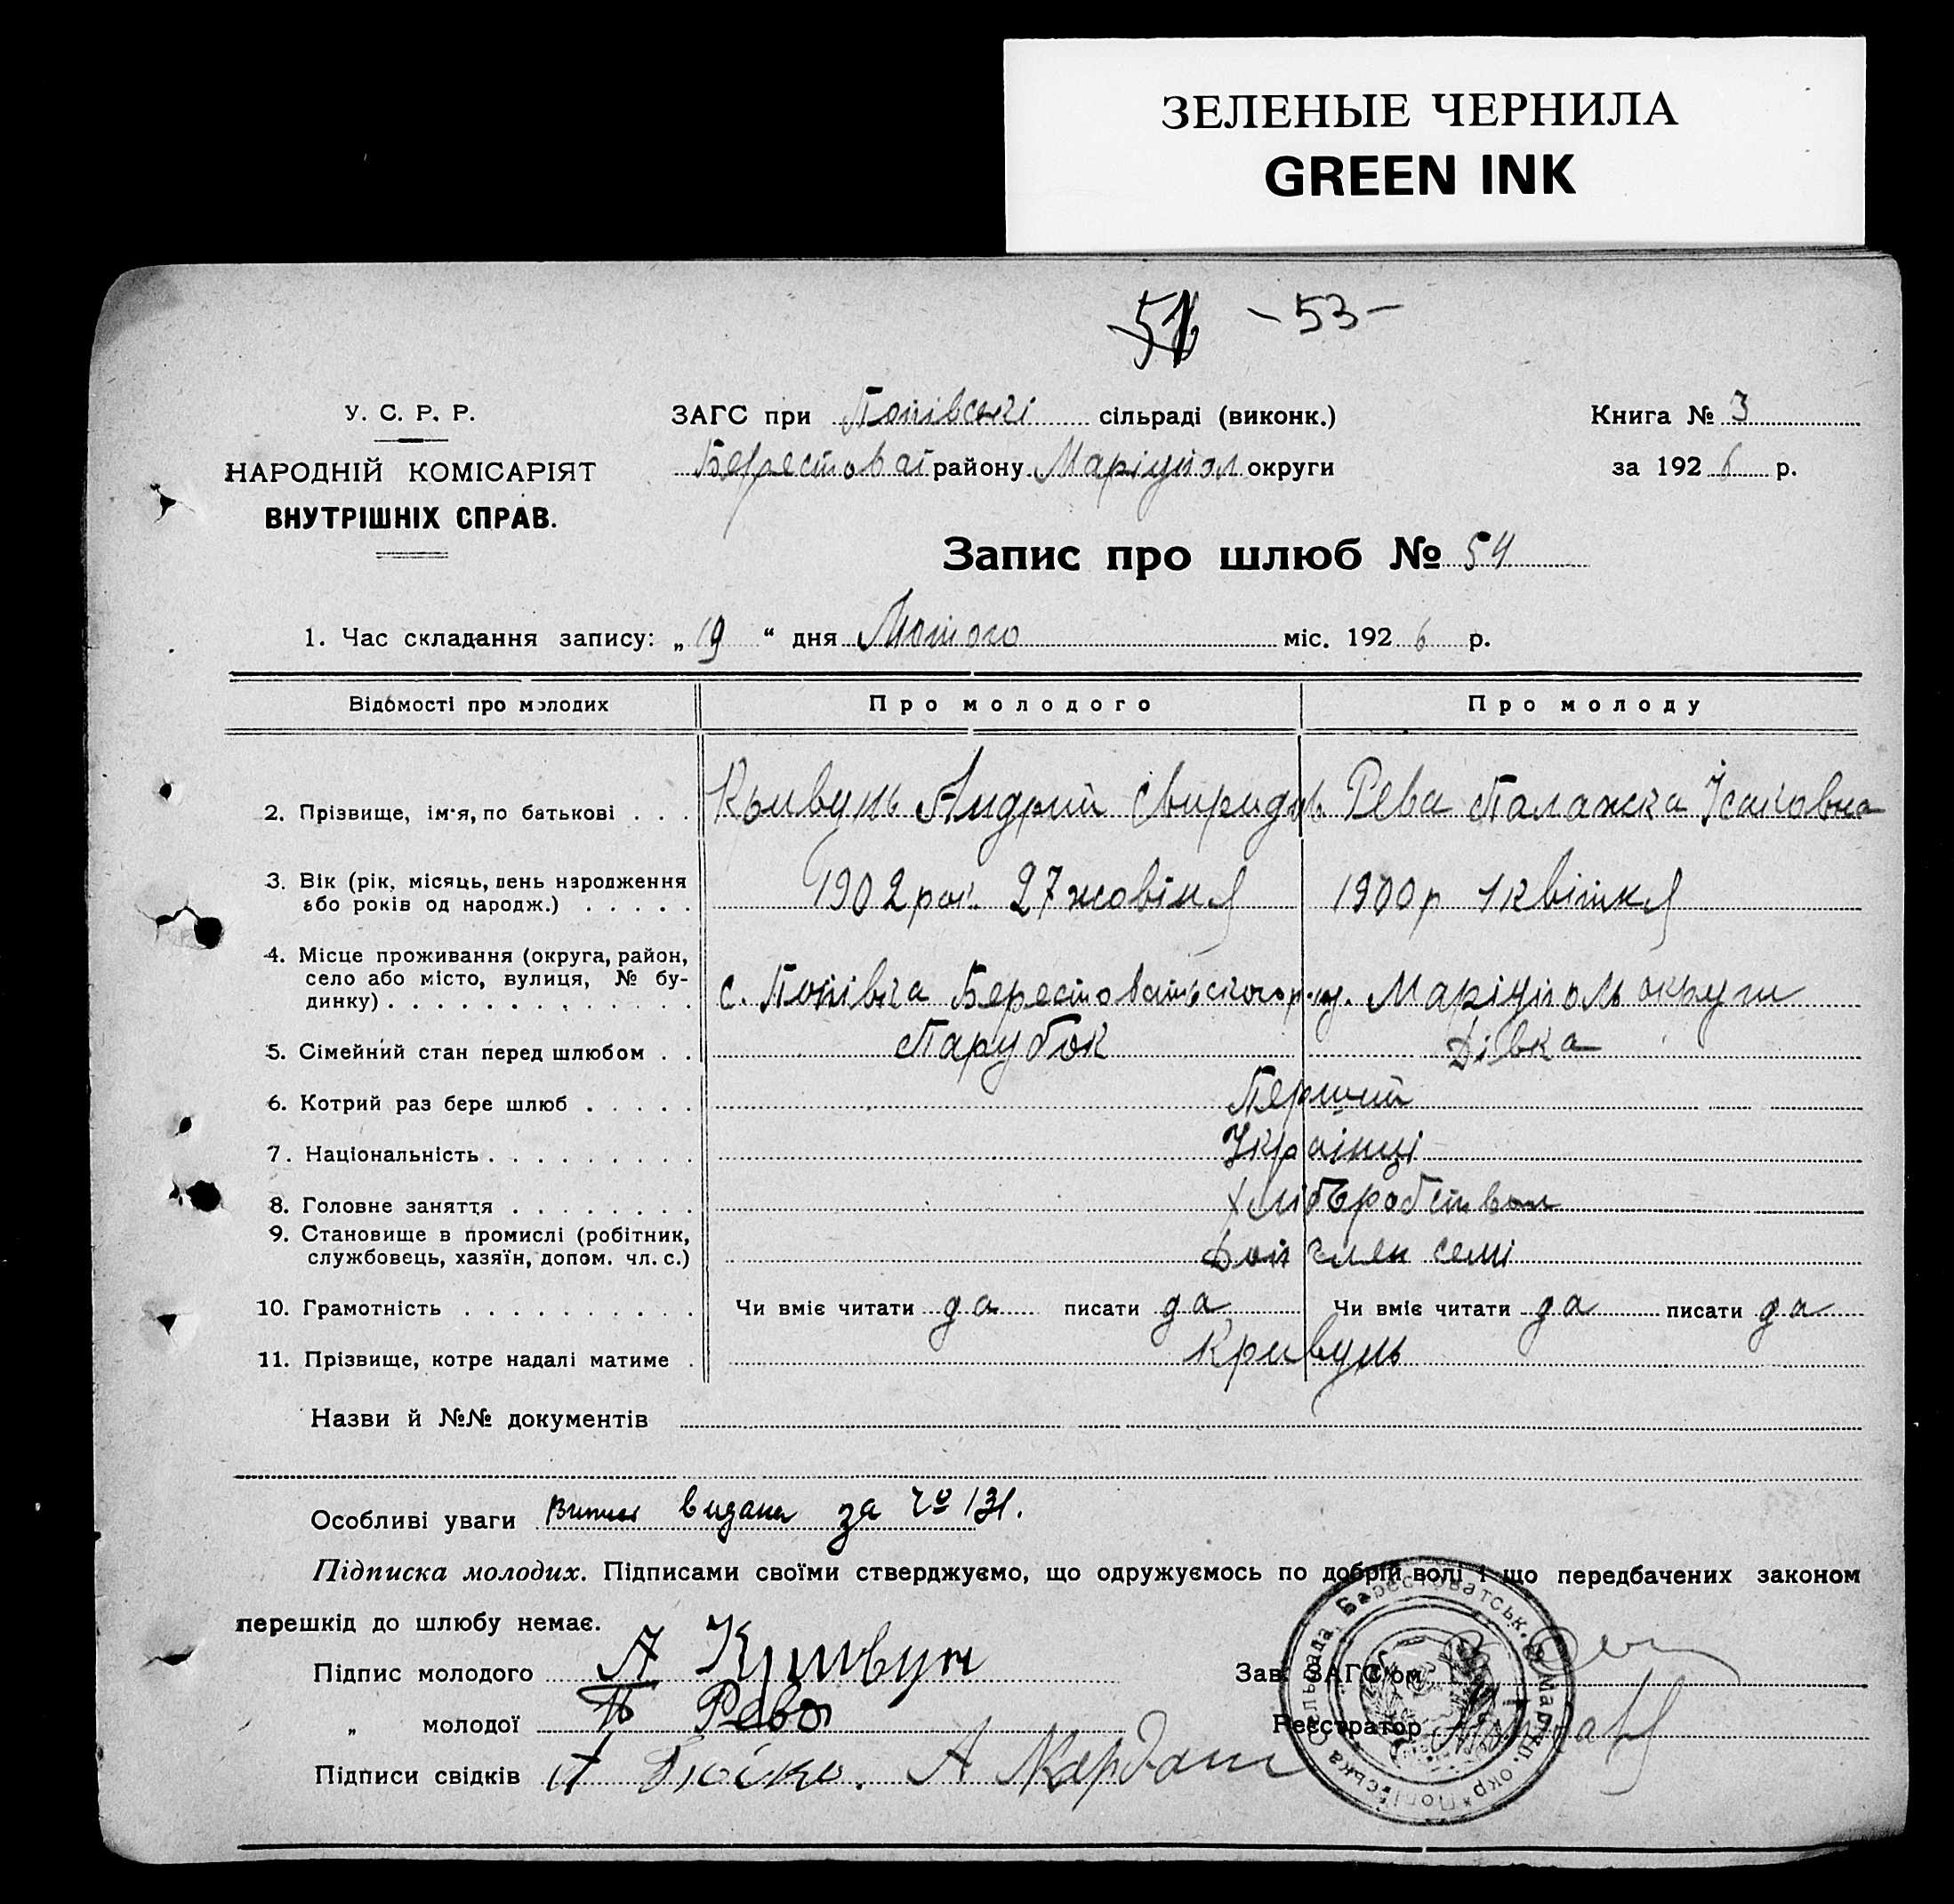 ЗЕЛЕНЫЕ ЧЕРНИЛА
GREEN INK
-53-
У. С. Р. Р.
НАРОДНІЙ КОМІСАРІЯТ
ВНУТРІШНІХ СПРАВ.
ЗАГС при Попівські сільраді (виконк.)
Берестоват району Маріупол округи
Книга № 3
за 1926 р.
Запис про шлюб № 54
1. Час складання запису: „19“ дня Лютого міс. 1926 р.
Відомості про молодих Про молодого Про молоду
2. Прізвище, ім'я, по батькові . . . Кривуль Андрій Свиридув Рева Палажка Ісаковна
3. Вік (рік, місяць, день народження
або років од народж.) . . . . . 1902 рок. 27 жовтня 1900 р 1 квітня
4. Місце проживання (округа, район,
село або місто, вулиця, № бу-
динку) . . . . . . . . . . . . . с. Попівка Берестоватьского р-ну. Маріуполь округи
5. Сімейний стан перед шлюбом . . Парубок Дівка
6. Котрий раз бере шлюб . . . . . Перший
7. Національність . . . . . . . . . Українці
8. Головне заняття . . . . . . . . Хліборобством
9. Становище в промислі (робітник,
службовець, хазяїн, допом. чл. с.) Доп член семі
10. Грамотність . . . . . . . . . . Чи вміє читати да писати да Чи вміє читати да писати да
11. Прізвище, котре надалі матиме . Кривуль
Назви й №№ документів
Особливі уваги видана за № 131.
Підписка молодих. Підписами своїми стверджуємо, що одружуємось по добрій волі і що передбачених законом
перешкід до шлюбу немає.
Підпис молодого А Кривун
„ молодої П Рева
Підписи свідків А Бойко. А Кардаш
Зав. ЗАГС'ом
Реєстратор
Попівська Сільрада, Берестоватськ. р. Маріюп. окр.